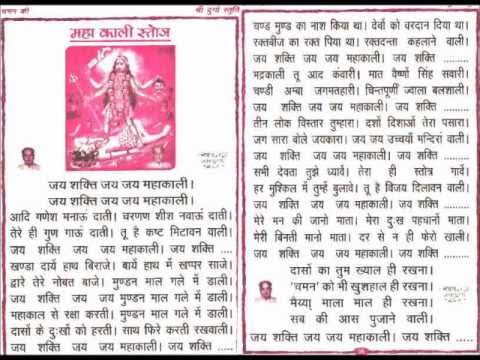 चमन की
महा काली स्तोत्र
जय शक्ति जय जय महाकाली।
जय शक्ति जय जय महाकाली।
आदि गणेश मनाऊं दाती। चरणण शीश नवाऊं दाती।
तेरे ही गुण गाऊं दाती। तू है कष्ट मिटावन वाली।
जय शक्ति जय जय महाकाली। जय शक्ति ....
खण्डा दायें हाथ बिराजे। बायें हाथ में खप्पर साजे।
द्वारे तेरे नोबत बाजे। मुण्डन माल गले में डाली।
जय शक्ति जय जय मुण्डन माल गले में डाली।
महाकाल से रक्षा करती। मुण्डन माल गले में डाली।
दासों के दुःखों को हरती। साथ फिरे करती रखवाली।
जय शक्ति जय जय महाकाली। जय शक्ति ....
श्री दुर्गा स्तुति
चण्ड मुण्ड का नाश किया था। देवों को वरदान दिया था।
रक्तबीज का रक्त पिया था। रक्तदन्ता कहलाने वाली।
जय शक्ति जय जय महाकाली। जय शक्ति .........
भद्रकाली तू आद कंवारी। मात वैष्णों सिंह सवारी।
चण्डी अम्बा जगमतहारी। चिन्तपूर्णी ज्वाला बलशाली।
जय शक्ति जय जय महाकाली। जय शक्ति .........
तीन लोक विस्तार तुम्हारा। दशों दिशाओं तेरा पसारा।
जग सारा बोले जयकारा। जय जय उच्चयाँ मन्दिरां वाली।
जय शक्ति जय जय महाकाली। जय शक्ति .........
सभी देवता तुझे ध्यावें। तेरा ही स्तोत्र गावें।
हर मुश्किल में तुम्हें बुलावे। तू है विजय दिलावन वाली।
जय शक्ति जय जय महाकाली। जय शक्ति .........
मेरे मन की जानो माता। मेरा दुःख पहचानों माता।
मेरी बिनती मानो माता। दर से न ही फेरो खाली।
जय शक्ति जय जय महाकाली। जय शक्ति .........
दासों का तुम ख्याल ही रखना।
'चमन' को भी खुशहाल ही रखना।
मैय्या माला माल ही रखना।
सब की आस पुजाने वाली।
जय शक्ति जय जय महाकाली। जय शक्ति ....